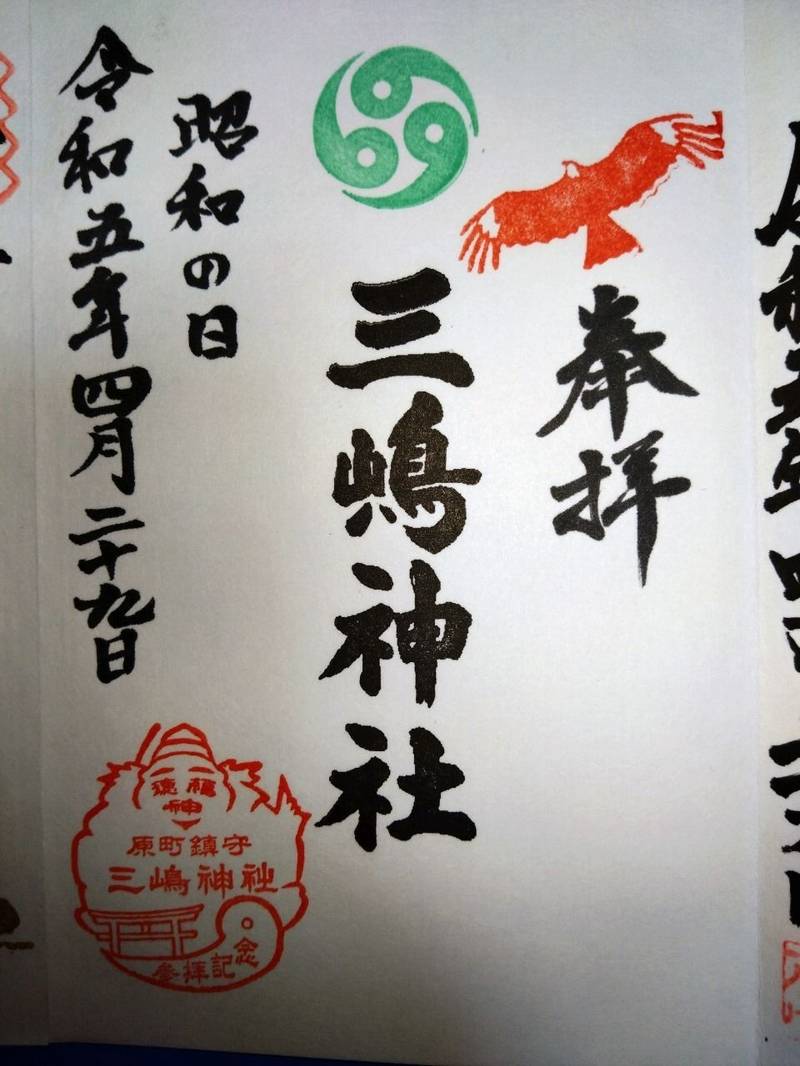 奉拝
三嶋神社
昭和の日
令和五年四月二十九日
福徳神
原町鎮守
三嶋神社
参拝記念